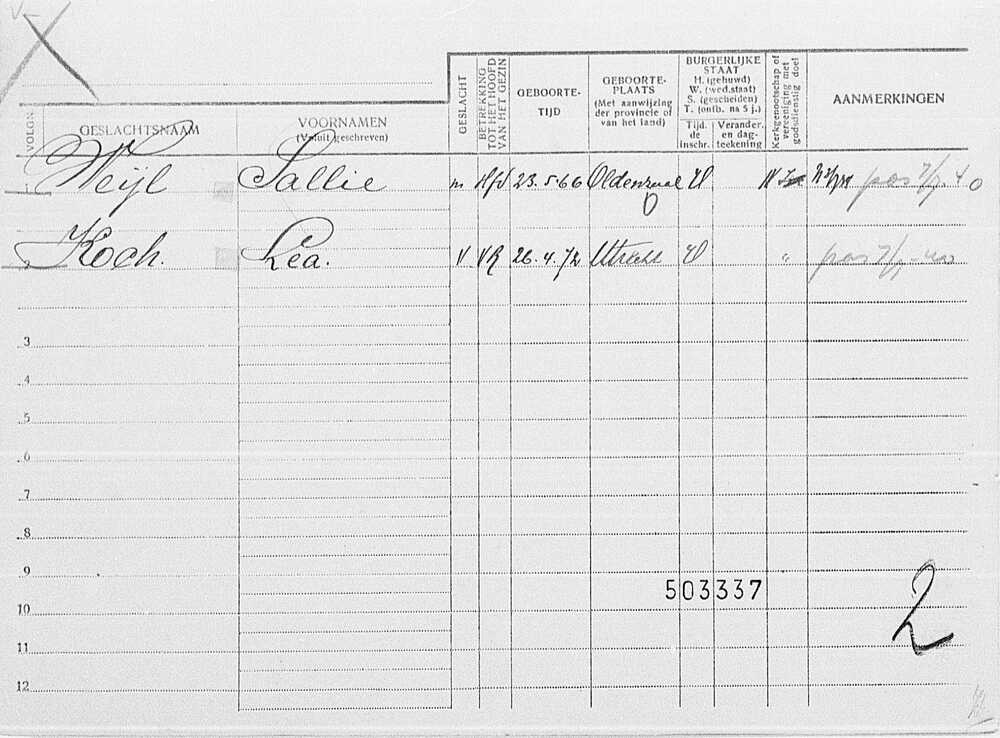 VOLGN.
GESLACHTSNAAM
VOORNAMEN
(Voluit geschreven)
GESLACHT
BETREKKING
TOT HET HOOFD
VAN HET GEZIN
GEBOORTE-
TIJD
GEBOORTE-
PLAATS
(Met aanwijzing
der provincie of
van het land)
BURGERLIJKE
STAAT
H. (gehuwd)
W. (wed.staat)
S. (gescheiden)
T. (ontb. na 5 j.)
Tijd.
de
inschr.
Verander.
en dag-
teekening
Kerkgenootschap of
vereeniging met
godsdienstig doel
AANMERKINGEN
Weijl Sallie m Hfd 23.5.66 Oldenzaal H N pas 7/7.40
Koch. Lea. V VR 26.4.72 Utrecht H " pas 7/7-40
3
4
5
6
7
8
9
503337
10
2
11
12